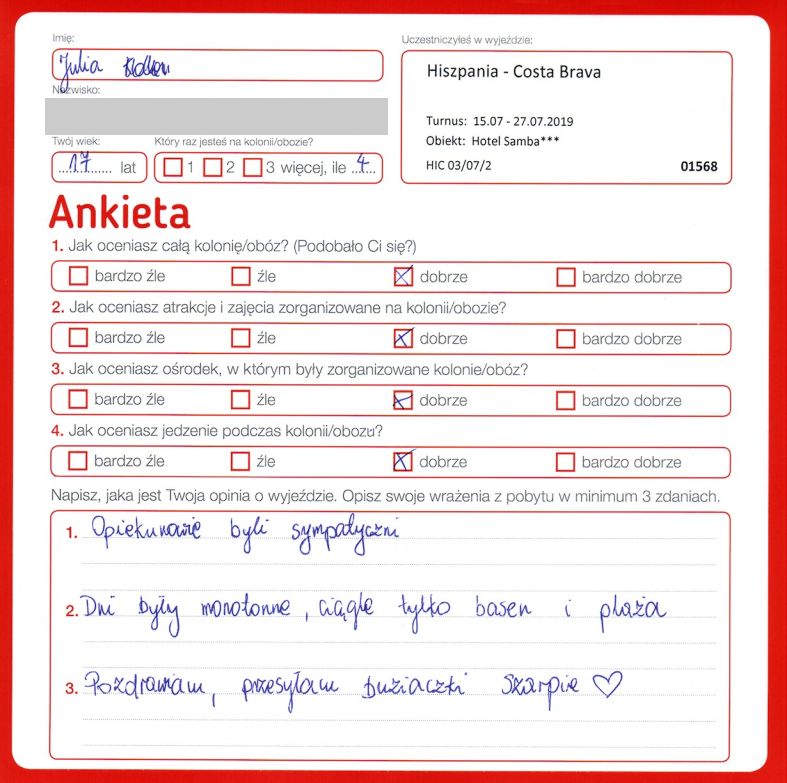 Imię:
Julia
Nazwisko:
Twój wiek:
17 lat
Który raz jesteś na kolonii/obozie?
1 2 3 więcej, ile 4
Uczestniczyłeś w wyjeździe:
Hiszpania - Costa Brava
Turnus: 15.07 - 27.07.2019
Obiekt: Hotel Samba***
HIC 03/07/2 01568
Ankieta
1. Jak oceniasz całą kolonię/obóz? (Podobało Ci się?)
bardzo źle źle dobrze bardzo dobrze
2. Jak oceniasz atrakcje i zajęcia zorganizowane na kolonii/obozie?
bardzo źle źle dobrze bardzo dobrze
3. Jak oceniasz ośrodek, w którym były zorganizowane kolonie/obóz?
bardzo źle źle dobrze bardzo dobrze
4. Jak oceniasz jedzenie podczas kolonii/obozu?
bardzo źle źle dobrze bardzo dobrze
Napisz, jaka jest Twoja opinia o wyjeździe. Opisz swoje wrażenia z pobytu w minimum 3 zdaniach.
1. Opiekunowie byli sympatyczni
2. Dni były monotonne, ciągle tylko basen i plaża
3. Pozdrawiam, przesyłam buziaczki Skarpie ♡